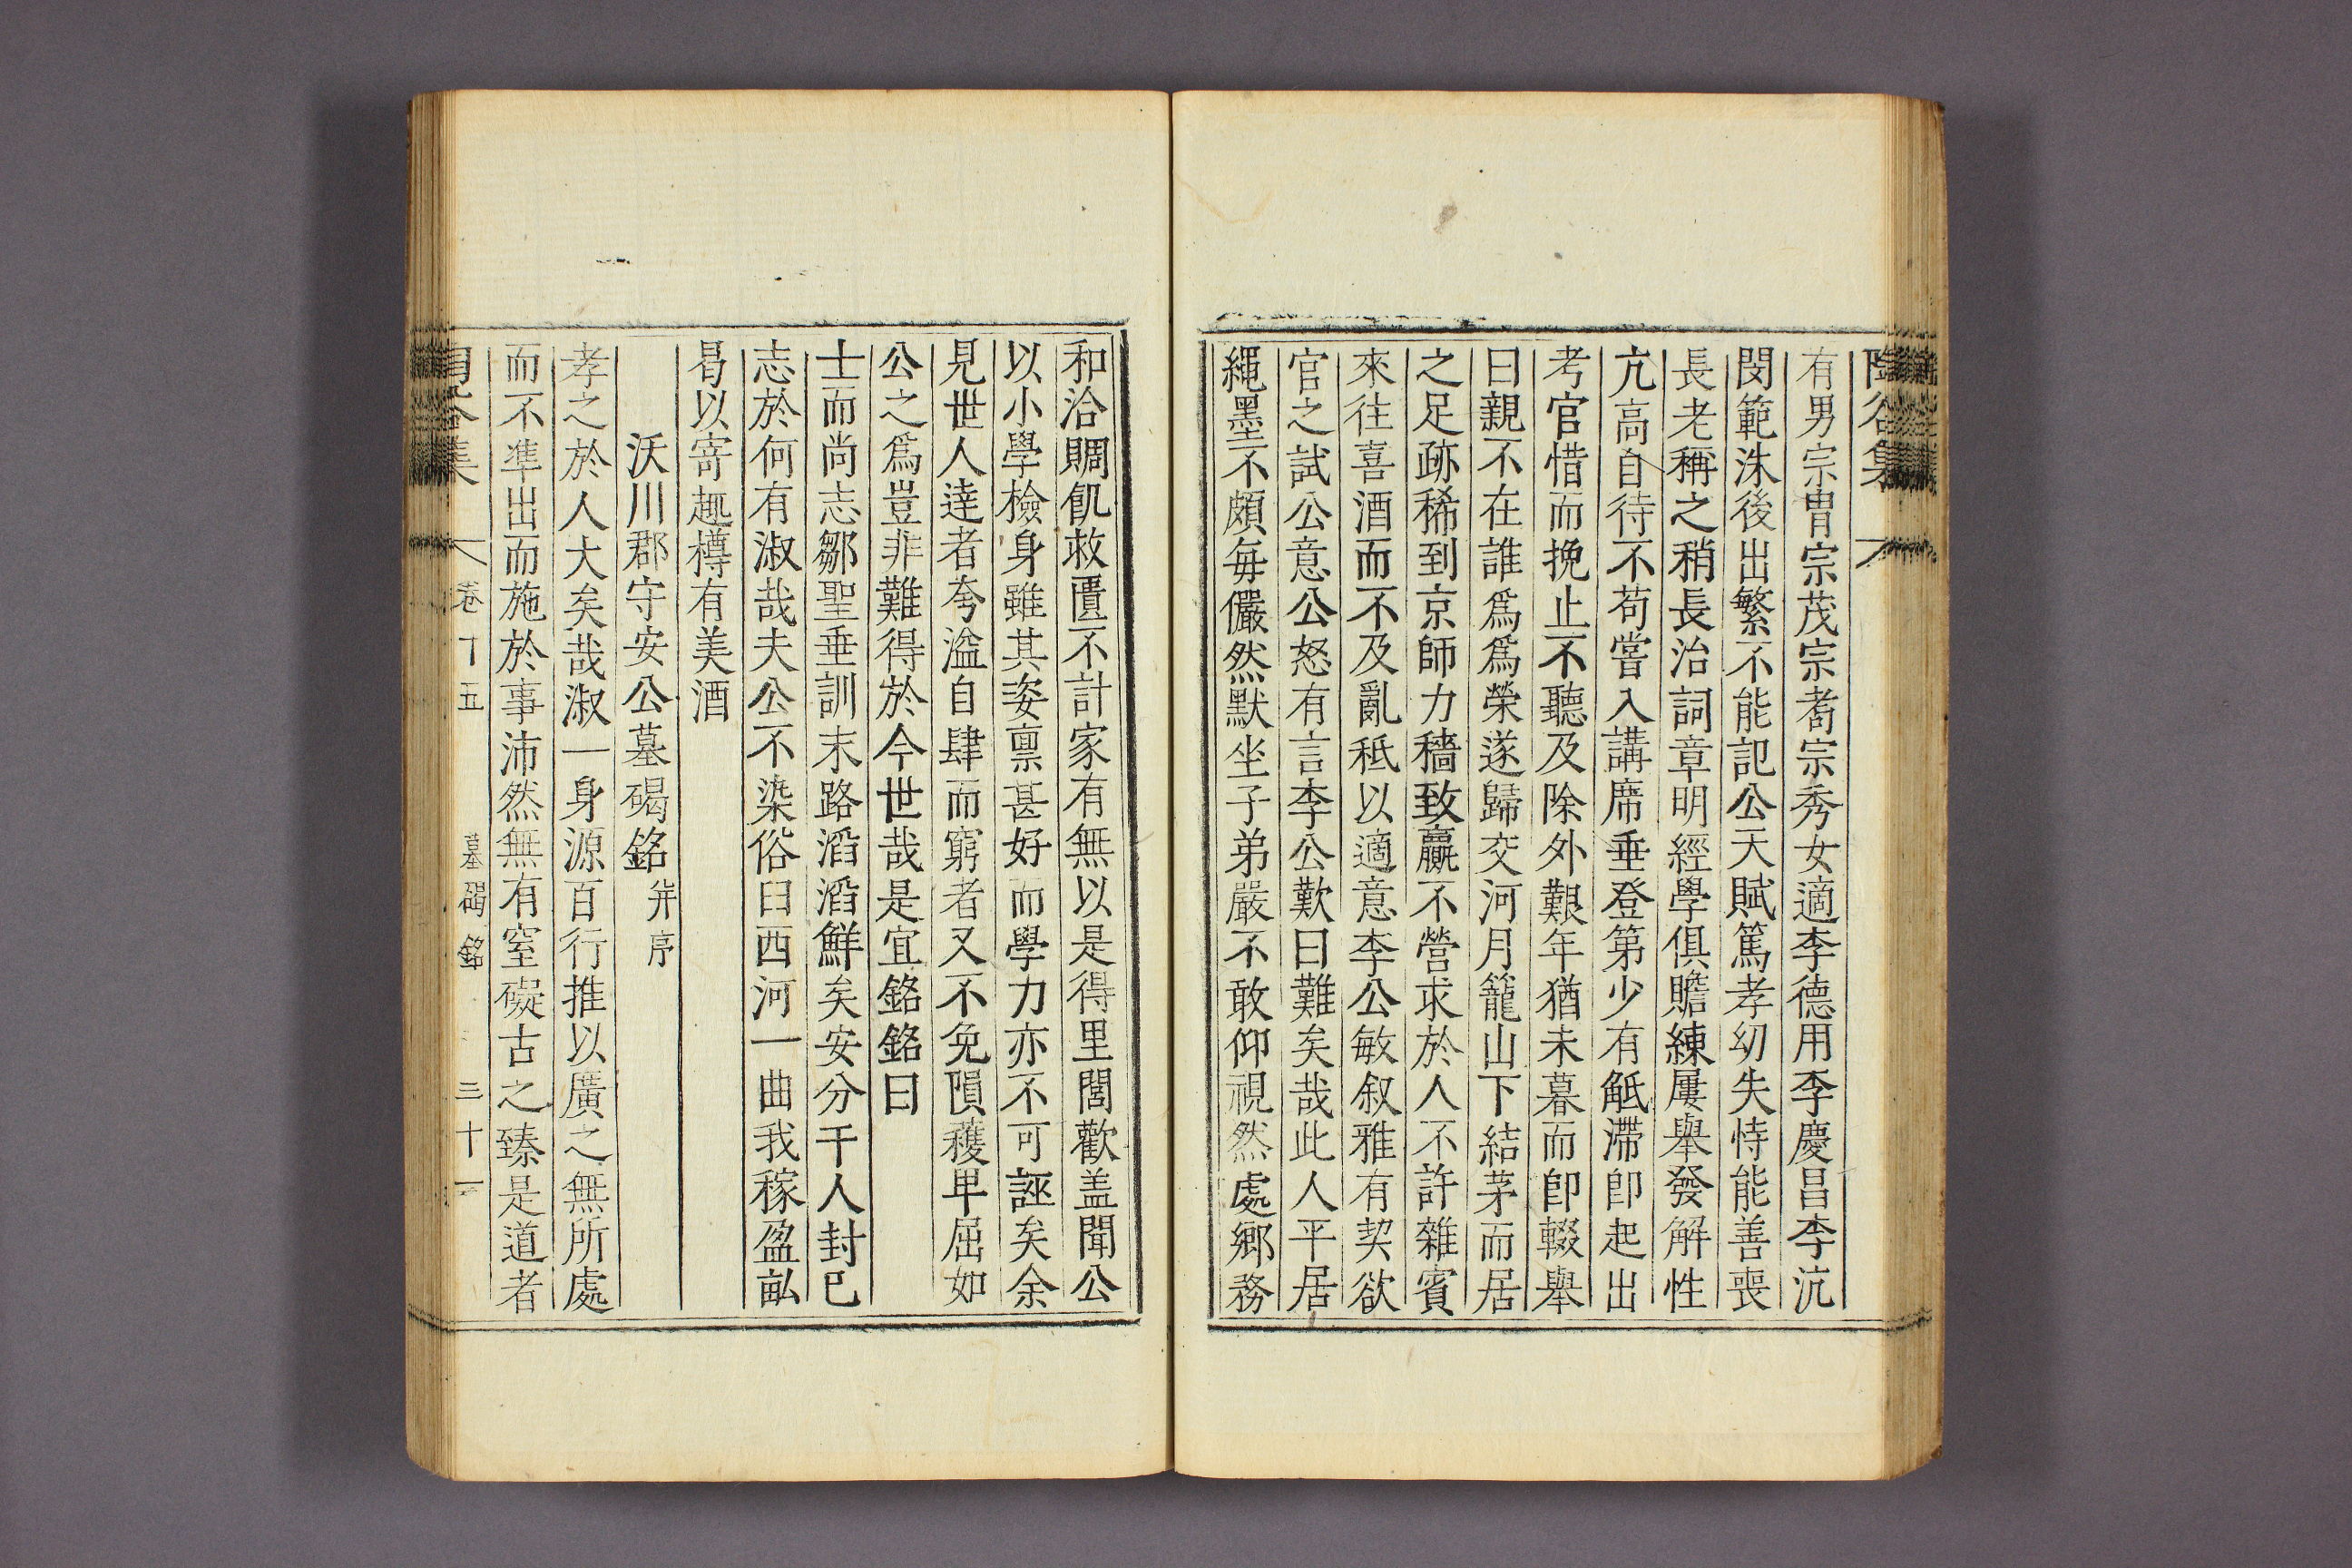 陶谷集
有男宗冑宗茂宗耇宗秀女適李德用李慶昌李沆
閔範洙後出繁不能記公天賦篤孝幼失恃能善喪
長老稱之稍長治詞章明經學俱贍練屢擧發解性
亢高自待不苟嘗入講席垂登第少有觝滯卽起出
考官惜而挽止不聽及除外艱年猶未暮而卽輟擧
曰親不在誰爲爲榮遂歸交河月籠山下結茅而居
之足跡稀到京師力穡致贏不營求於人不許雜賓
來往喜酒而不及亂秪以適意李公敏叙雅有契欲
官之試公意公怒有言李公歎曰難矣哉此人平居
繩墨不頗每儼然默坐子弟嚴不敢仰視然處鄕務
和洽賙飢救匱不計家有無以是得里閭歡盖聞公
以小學檢身雖其姿禀甚好而學力亦不可誣矣余
見世人達者夸溢自肆而窮者又不免隕穫卑屈如
公之爲豈非難得於今世哉是宜銘銘曰
士而尚志鄒聖垂訓末路滔滔鮮矣安分千人封己
志於何有淑哉夫公不染俗臼西河一曲我稼盈畝
曷以寄趣樽有美酒
沃川郡守安公墓碣銘 幷序
孝之於人大矣哉淑一身源百行推以廣之無所處
而不準出而施於事沛然無有窒礙古之臻是道者
陶谷集 卷十五 墓碣銘 三十一